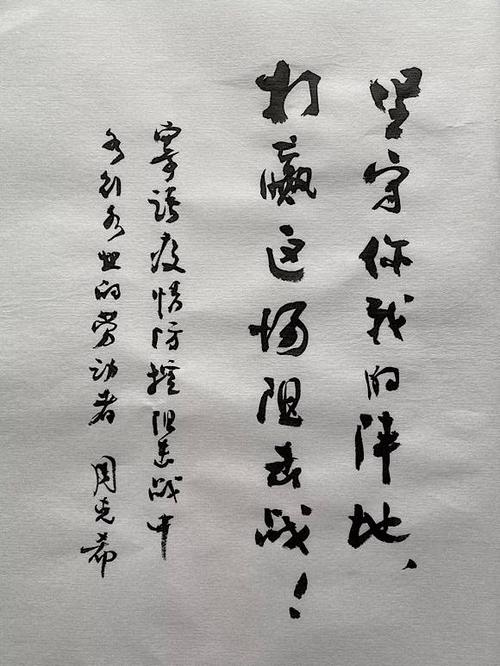 坚守你我的阵地、
打赢这场阻击战！
寄语疫情防控阻击战中
各行各业的劳动者 周克希